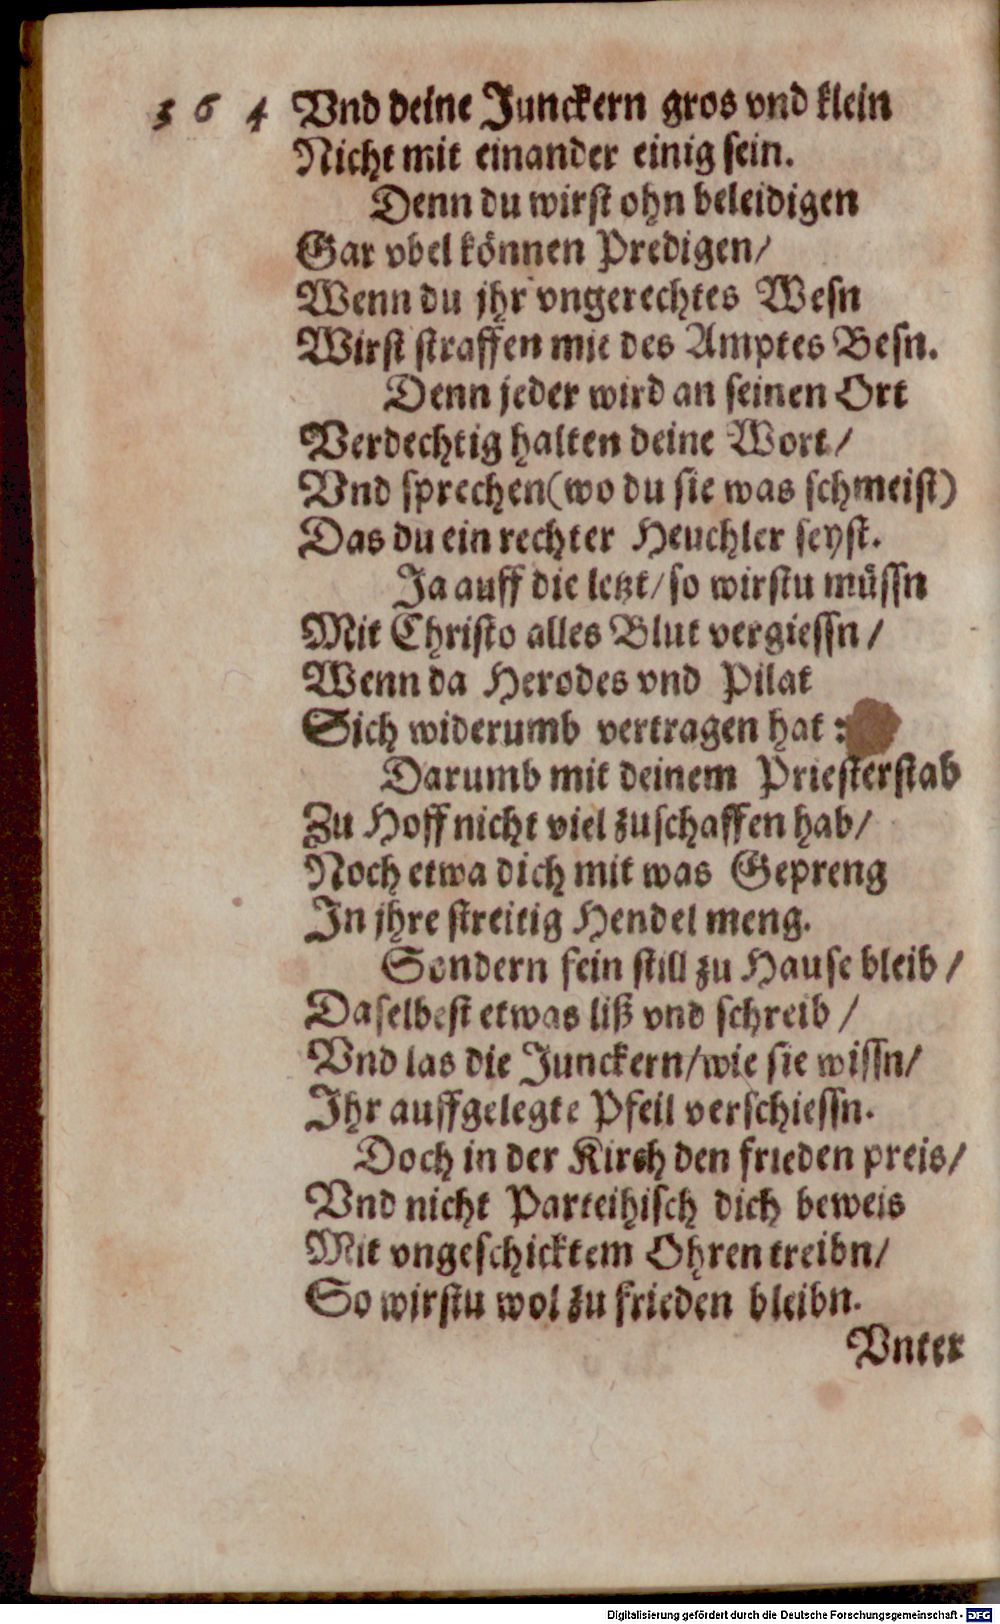 3 6 4 Vnd deine Junckern gros vnd klein
Nicht mit einander einig sein.
Denn du wirst ohn beleidigen
Gar vbel können Predigen/
Wenn du jhr vngerechtes Wesn
Wirst straffen mit des Amptes Besn.
Denn jeder wird an seinen Ort
Verdechtig halten deine Wort/
Vnd sprechen(wo du sie was schmeist)
Das du ein rechter Heuchler seyst.
Ja auff die letzt/so wirstu müssn
Mit Christo alles Blut vergiessn/
Wenn da Herodes vnd Pilat
Sich widerumb vertragen hat:
Darumb mit deinem Priesterstab
Zu Hoff nicht viel zuschaffen hab/
Noch etwa dich mit was Gepreng
In jhre streitig Hendel meng.
Sondern fein still zu Hause bleib/
Daselbest etwas liß vnd schreib/
Vnd las die Junckern/wie sie wissn/
Ihr auffgelegte Pfeil verschiessn.
Doch in der Kirch den frieden preis/
Vnd nicht Parteihisch dich beweis
Mit vngeschicktem Ohren treibn/
So wirstu wol zu frieden bleibn.
Vnter
Digitalisierung gefördert durch die Deutsche Forschungsgemeinschaft - DFG